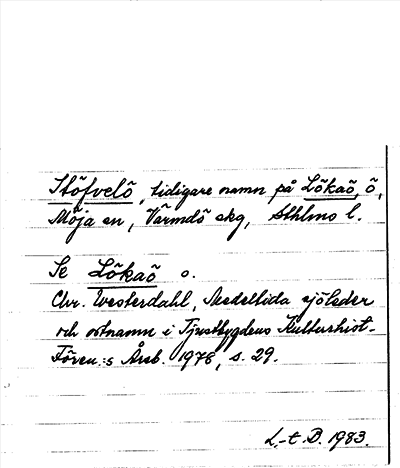 Stöfvelö, tidigare namn på Lökaö, ö,
Möja sn, Värmdö skg, Sthlms l.
Se Lökaö o.
Chr. Westerdahl, Medeltida sjöleder
och ortnamn i Tjustbygdens Kulturhist-
Fören:s Årsb. 1978, s. 29.
L.-t. B. 1983.